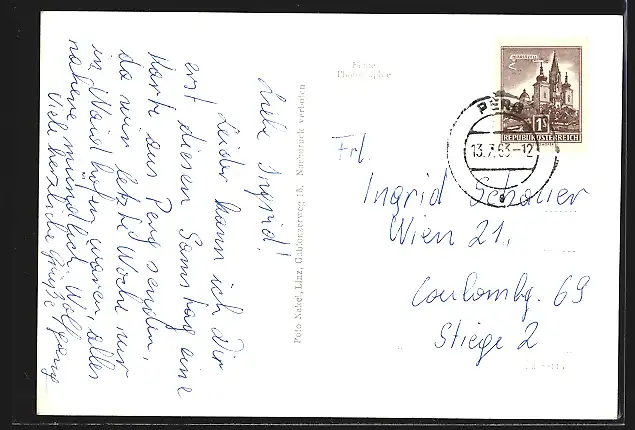 Liebe Ingrid!
Leider kann ich Dir
erst diesen Samstag eine
Karte aus Perg senden,
da wir letzte Woche nur
in Waidhofen waren, alles
nähere mündlich Wolfgang
Viele herzliche Grüße
Foto Nabel, Linz, Nachdruck verboten
Echte
Photographie
MARIAZELL
1S
REPUBLIK ÖSTERREICH
PERG
13.7.63-12
Frl.
Ingrid Schaller
Wien 21.,
Coulombg. 69
Stiege 2